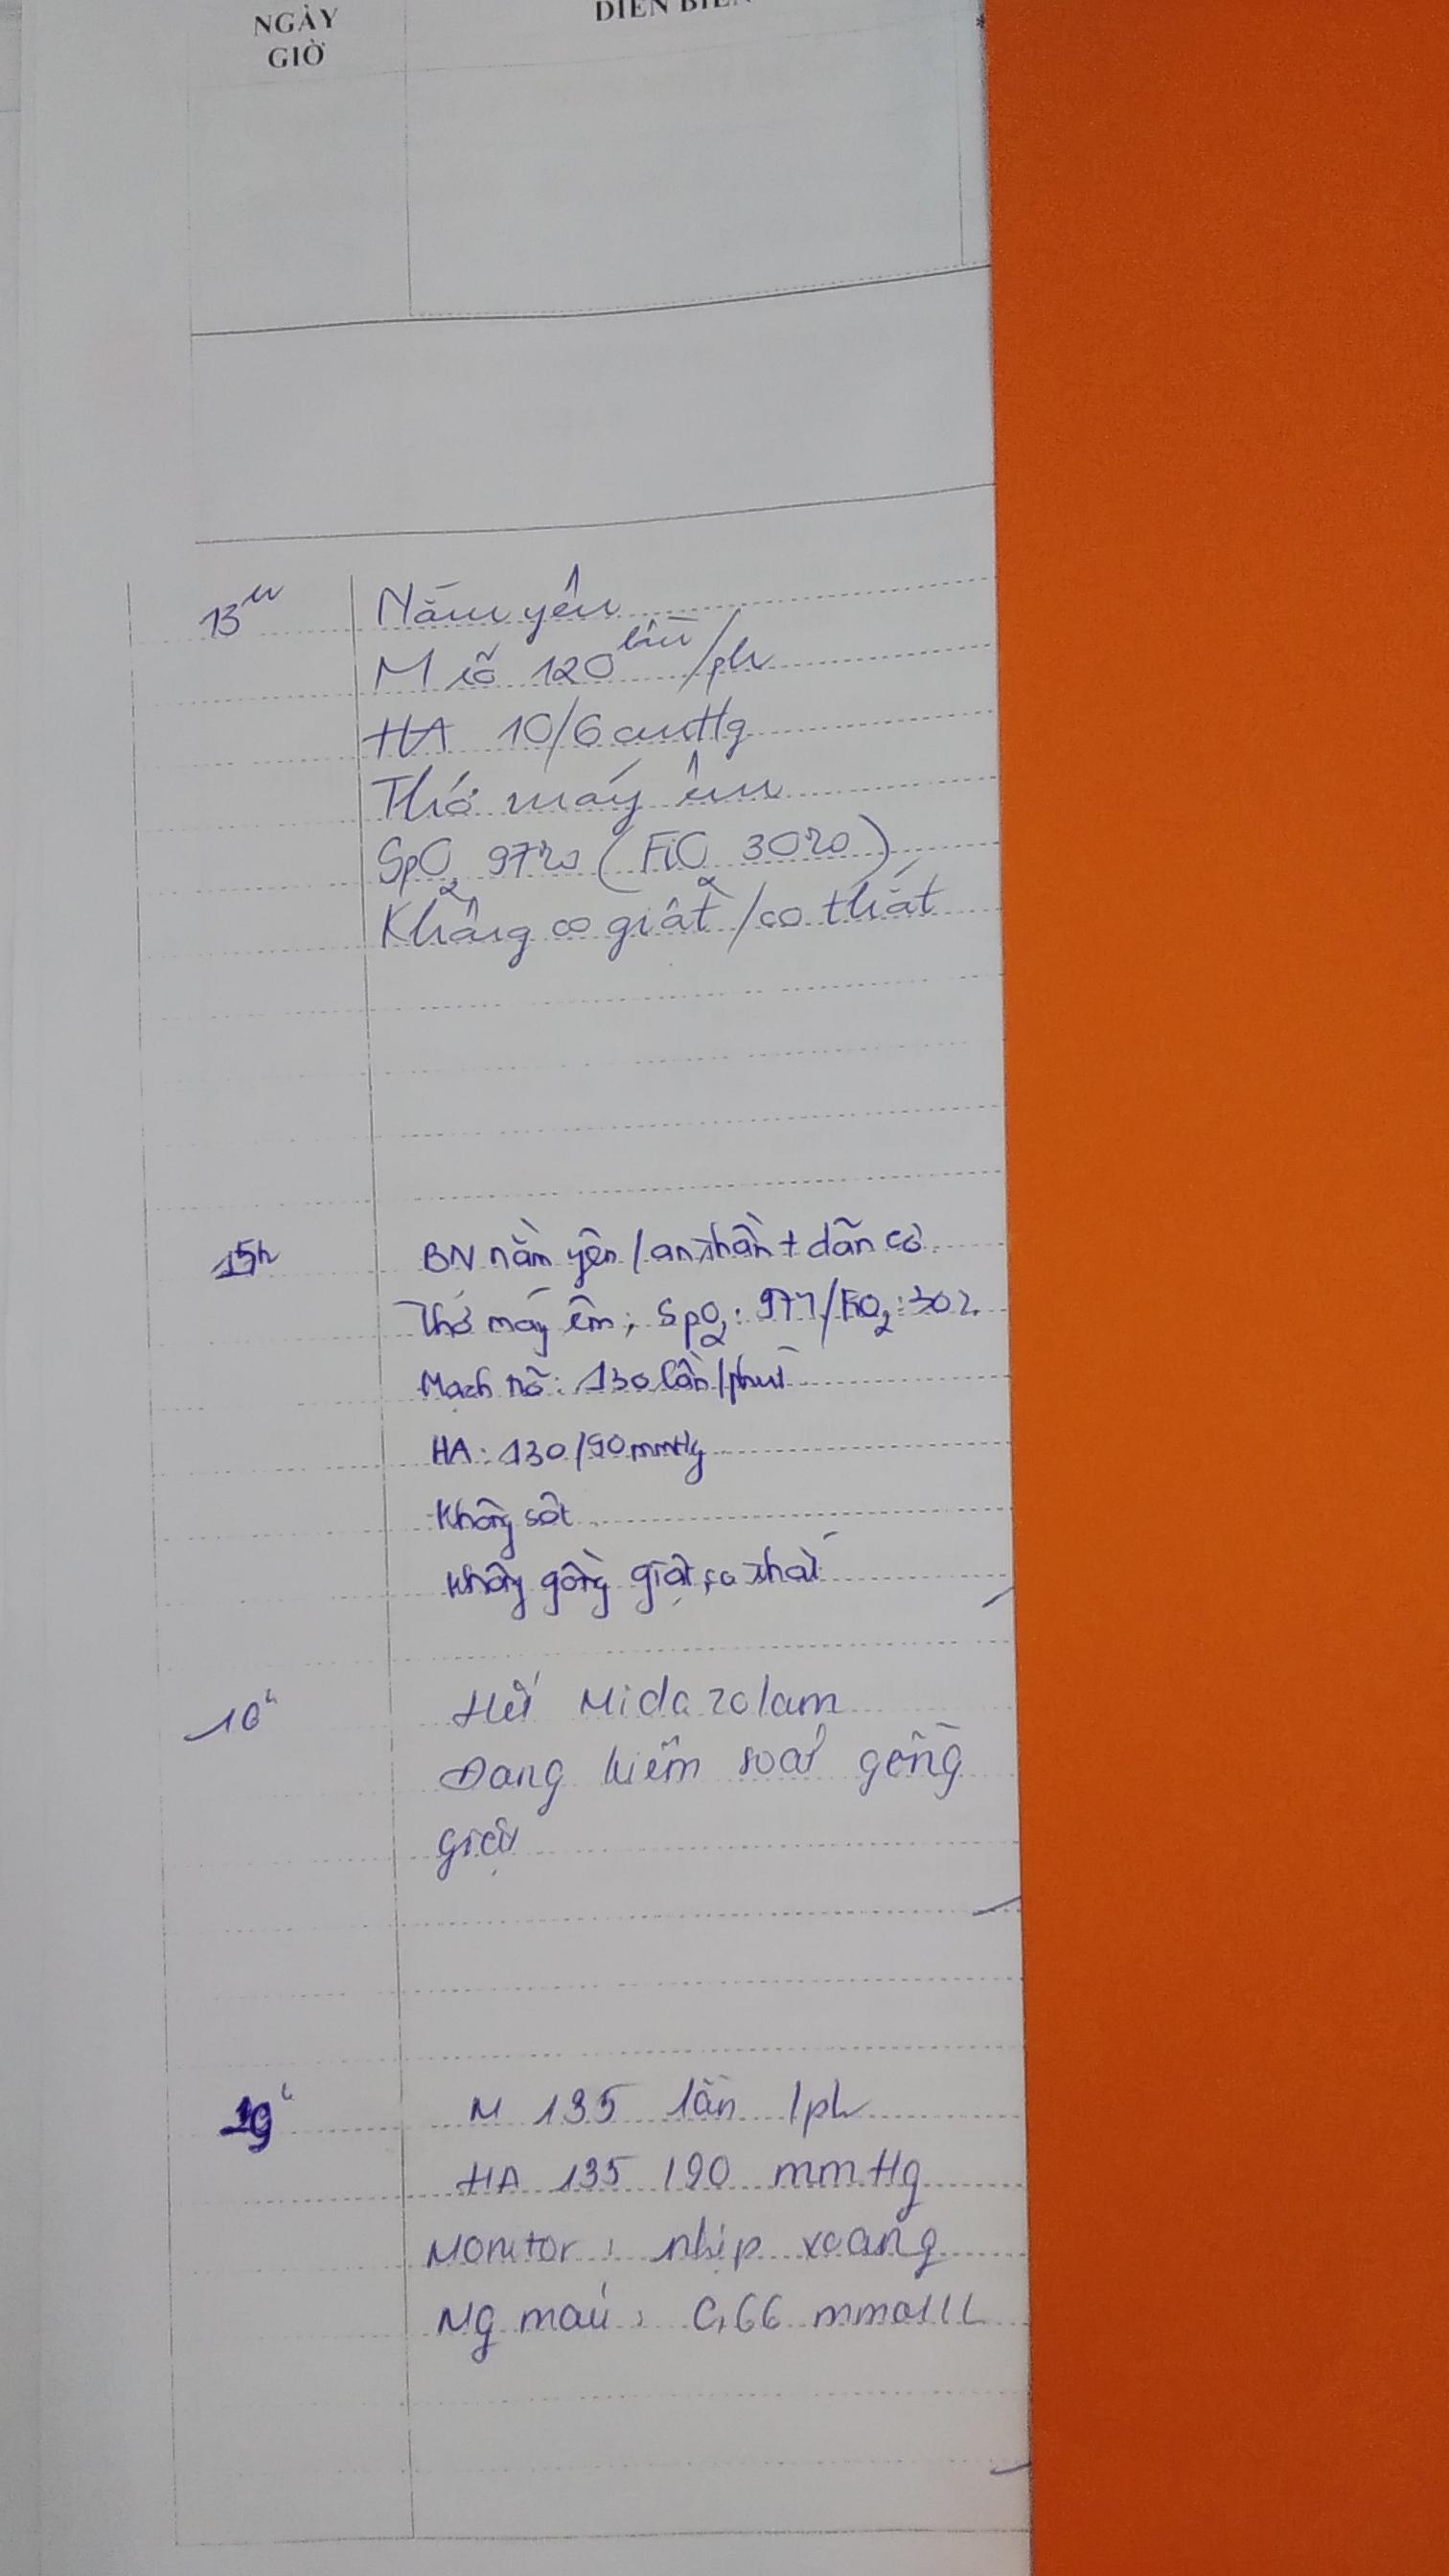 NGÀY
GIỜ
DIỄN BIẾN
13h
Nằm yên
M rõ 120 lần/ph
HA 10/6 cmHg
Thở máy êm
SpO2 97% (FiO2 30%)
Không co giật/co thắt
15h
BN nằm yên/an thần + dãn cơ
Thở máy êm; SpO2: 97%/FiO2: 30%
Mạch rõ: 130 lần/phút
HA: 130/90mmHg
Không sốt
Không gồng giật, co thắt
16h
Hết Midazolam
Đang kiểm soát gồng
giật
19h
M 135 lần/ph
HA 135/90 mmHg
Monitor: nhịp xoang
Mg máu: 0,66 mmol/L